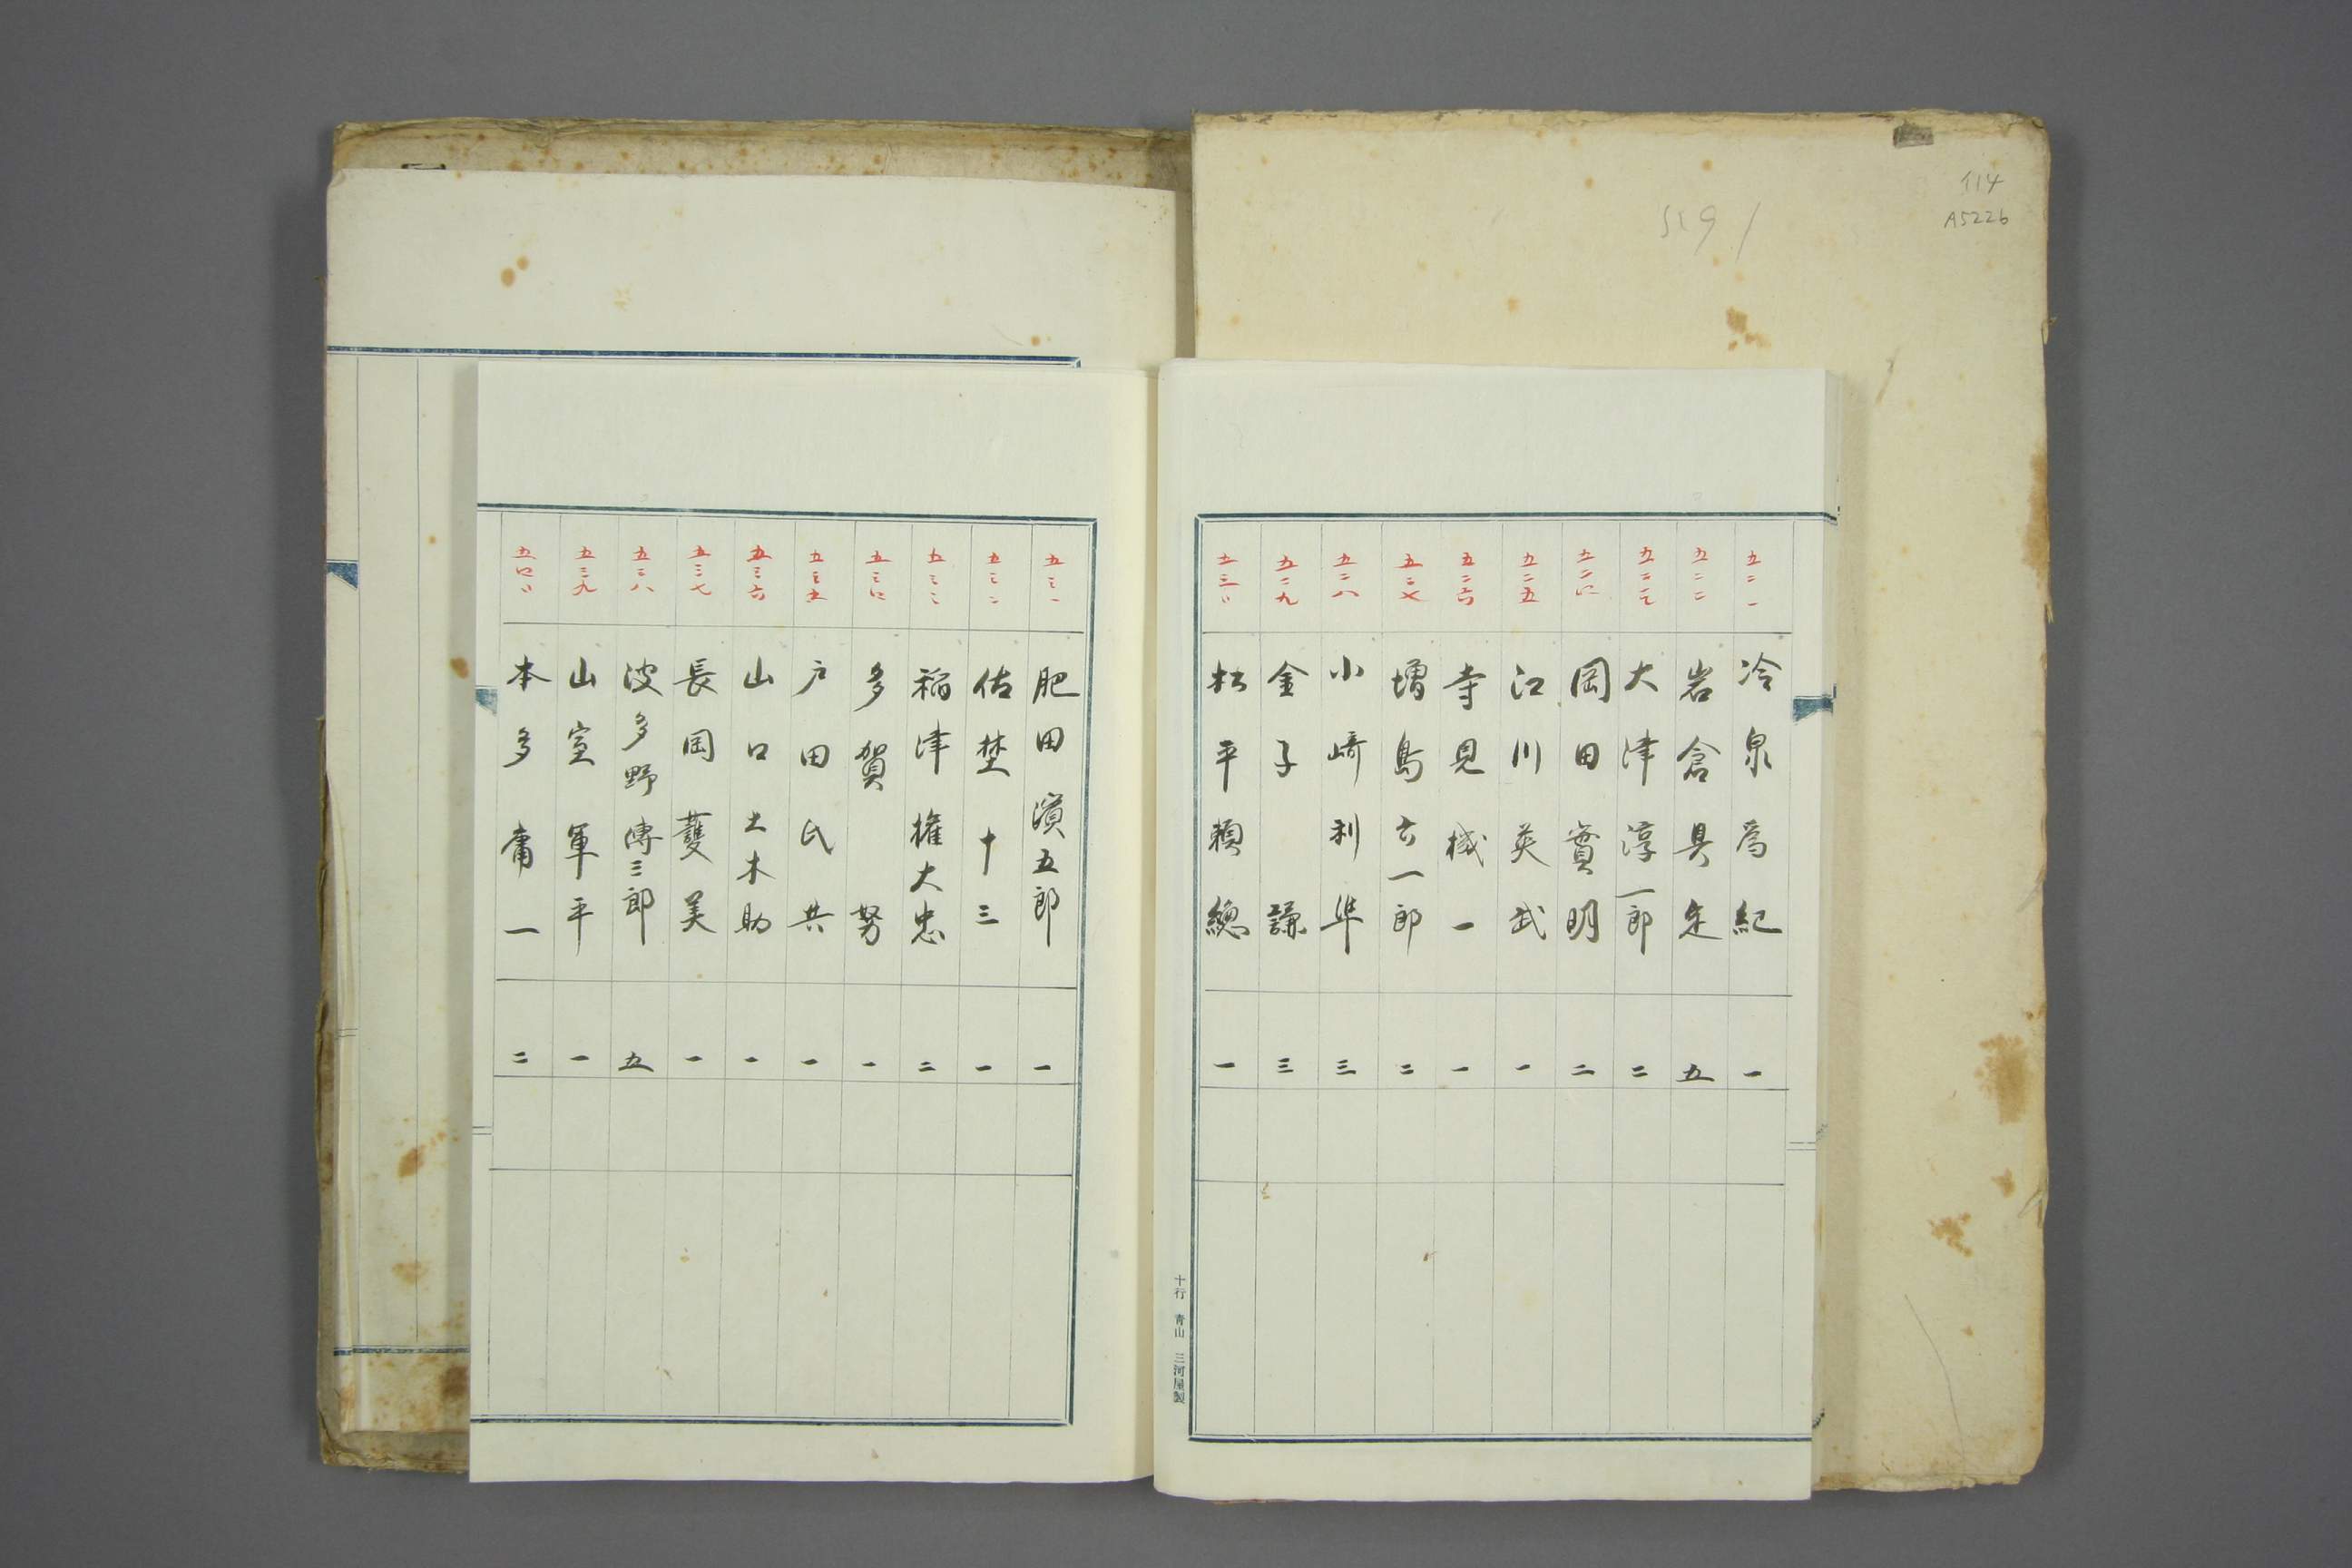 114
A5226
五二一 冷泉為紀 一
五二二 岩倉具定 五
五二三 大津淳一郎 二
五二四 岡田實明 二
五二五 江川英武 一
五二六 寺見機一 一
五二七 増島六一郎 二
五二八 小﨑利準 三
五二九 金子謙 三
五三〇 松平頼總 一
十行 青山 三河屋製
五三一 肥田濱五郎 一
五三二 佐埜十三 一
五三三 稲津権大忠 二
五三四 多賀努 一
五三五 戸田氏共 一
五三六 山口土木助 一
五三七 長岡護美 一
五三八 波多野傳三郎 五
五三九 山室軍平 一
五四〇 本多庸一 二